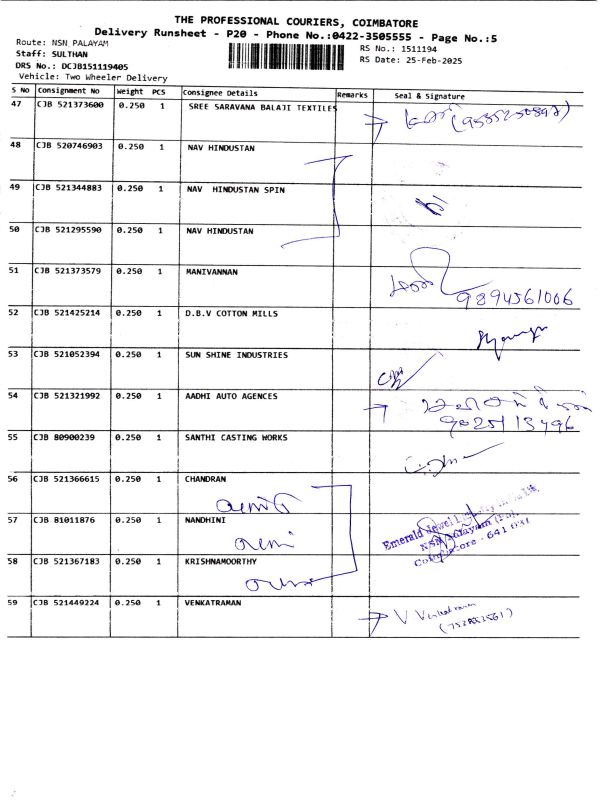 THE PROFESSIONAL COURIERS, COIMBATORE
Delivery Runsheet - P20 - Phone No.:0422-3505555 - Page No.:5
Route: NSN PALAYAM
Staff: SULTHAN
DRS No.: DCJB151119405
Vehicle: Two Wheeler Delivery
RS No.: 1511194
RS Date: 25-Feb-2025
S No Consignment No Weight PCS Consignee Details Remarks Seal & Signature
47 CJB 521373600 0.250 1 SREE SARAVANA BALAJI TEXTILES
48 CJB 520746903 0.250 1 NAV HINDUSTAN
49 CJB 521344883 0.250 1 NAV HINDUSTAN SPIN
50 CJB 521295590 0.250 1 NAV HINDUSTAN
51 CJB 521373579 0.250 1 MANIVANNAN
9894561006
52 CJB 521425214 0.250 1 D.B.V COTTON MILLS
53 CJB 521052394 0.250 1 SUN SHINE INDUSTRIES
54 CJB 521321992 0.250 1 AADHI AUTO AGENCES
9025113496
55 CJB 80900239 0.250 1 SANTHI CASTING WORKS
56 CJB 521366615 0.250 1 CHANDRAN
57 CJB 81011876 0.250 1 NANDHINI
Emerald Jewel
NSN Palayam
Coimbatore - 641 031
58 CJB 521367183 0.250 1 KRISHNAMOORTHY
59 CJB 521449224 0.250 1 VENKATRAMAN V Venkatraman